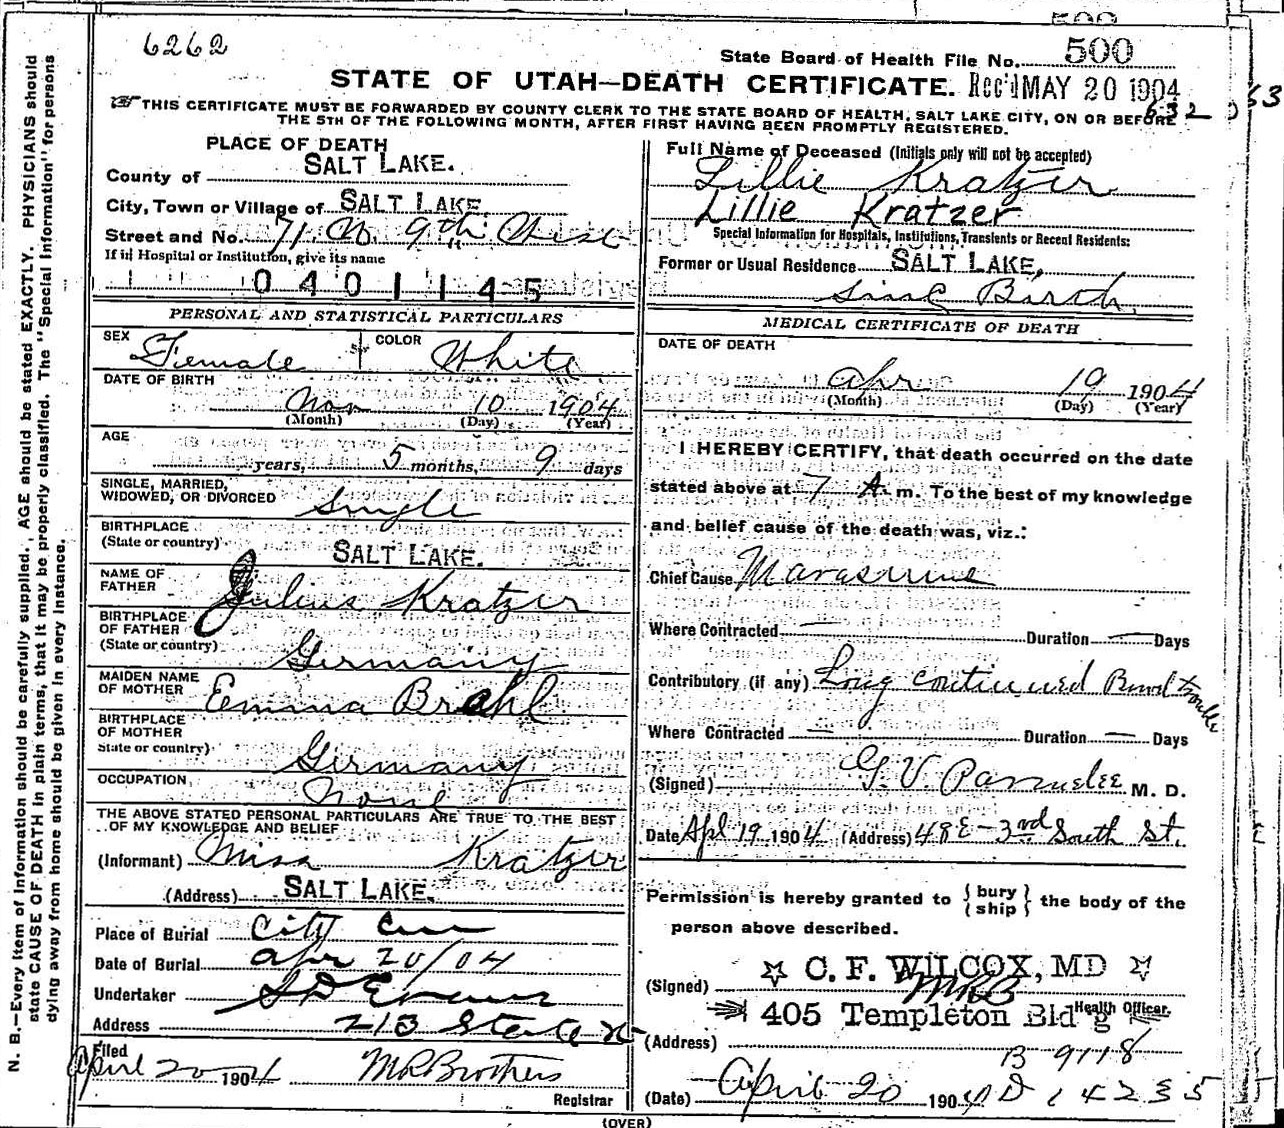 6262
500
State Board of Health File No. 500
STATE OF UTAH—DEATH CERTIFICATE. Rec'd MAY 20 1904
632
THIS CERTIFICATE MUST BE FORWARDED BY COUNTY CLERK TO THE STATE BOARD OF HEALTH, SALT LAKE CITY, ON OR BEFORE
THE 5TH OF THE FOLLOWING MONTH, AFTER FIRST HAVING BEEN PROMPTLY REGISTERED.
PLACE OF DEATH
County of SALT LAKE.
City, Town or Village of SALT LAKE
Street and No. 71. N. 9th West
If in Hospital or Institution, give its name
0401145
PERSONAL AND STATISTICAL PARTICULARS
SEX Female COLOR White
DATE OF BIRTH
Nov 10 1904
(Month) (Day) (Year)
AGE
years, 5 months, 9 days
SINGLE, MARRIED,
WIDOWED, OR DIVORCED Single
BIRTHPLACE
(State or country) SALT LAKE.
NAME OF
FATHER Julius Kratzer
BIRTHPLACE
OF FATHER
(State or country) Germany
MAIDEN NAME
OF MOTHER Emma Brahl
BIRTHPLACE
OF MOTHER
State or country) Germany
OCCUPATION None
THE ABOVE STATED PERSONAL PARTICULARS ARE TRUE TO THE BEST
OF MY KNOWLEDGE AND BELIEF
(Informant) Kratzer
(Address) SALT LAKE.
Place of Burial City Cem
Date of Burial Apr 20/04
Undertaker S D Evans
Address 213 State St
Filed
April 20 1904 M R Brothers
Registrar
Full Name of Deceased (Initials only will not be accepted)
Lillie Kratzer
Lillie Kratzer
Special Information for Hospitals, Institutions, Transients or Recent Residents:
Former or Usual Residence SALT LAKE,
since Birth
MEDICAL CERTIFICATE OF DEATH
DATE OF DEATH
Apr 19 1904
(Month) (Day) (Year)
I HEREBY CERTIFY, that death occurred on the date
stated above at 7 A. m. To the best of my knowledge
and belief cause of the death was, viz.:
Chief Cause Marasmus
Where Contracted — Duration — Days
Contributory (if any) Long continued Bowel trouble
Where Contracted — Duration — Days
(Signed) G. V. Parmelee M. D.
Date Apl 19 1904 (Address) 48 E - 3rd South St.
Permission is hereby granted to { bury / ship } the body of the
person above described.
(Signed) C. F. WILCOX, MD
MRB
405 Templeton Bld'g Health Officer.
(Address)
B 9118
(Date) April 20 1904 D 14235
(OVER)
N. B.—Every item of information should be carefully supplied. AGE should be stated EXACTLY. PHYSICIANS should
state CAUSE OF DEATH in plain terms, that it may be properly classified. The "Special Information" for persons
dying away from home should be given in every instance.